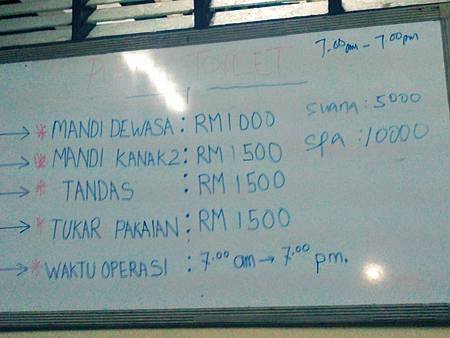 TOILET
7.00am - 7.00pm
→ * MANDI DEWASA : RM1000
→ * MANDI KANAK2 : RM 1500
→ * TANDAS : RM 1500
→ * TUKAR PAKAIAN : RM 1500
→ * WAKTU OPERASI : 7.00 am → 7.00 pm.
suana : 5000
spa : 10000